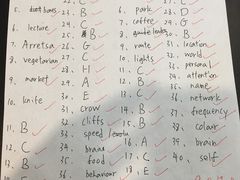 22. C
5. dust bins 23. B 6. park 28. D
24. C 7. coffee 29. G
6. lecture 25. B 8. guide leader 30. B
7. Arretsa 26. G 9. route 31. location
8. vegetarian 27. C 10. lights 32. world
28. H 11. C 33. personal
9. market 29. A 12. C 34. attention
10. knife 30. E 13. E 35. name
31. crow 14. B 36. network
11. B 32. cliffs 15. B 37. frequency
12. C 33. speed 38. colour
34. brains 16. A 39. brain
13. B 35. food 17. C 40. self
36. behaviour 18. E